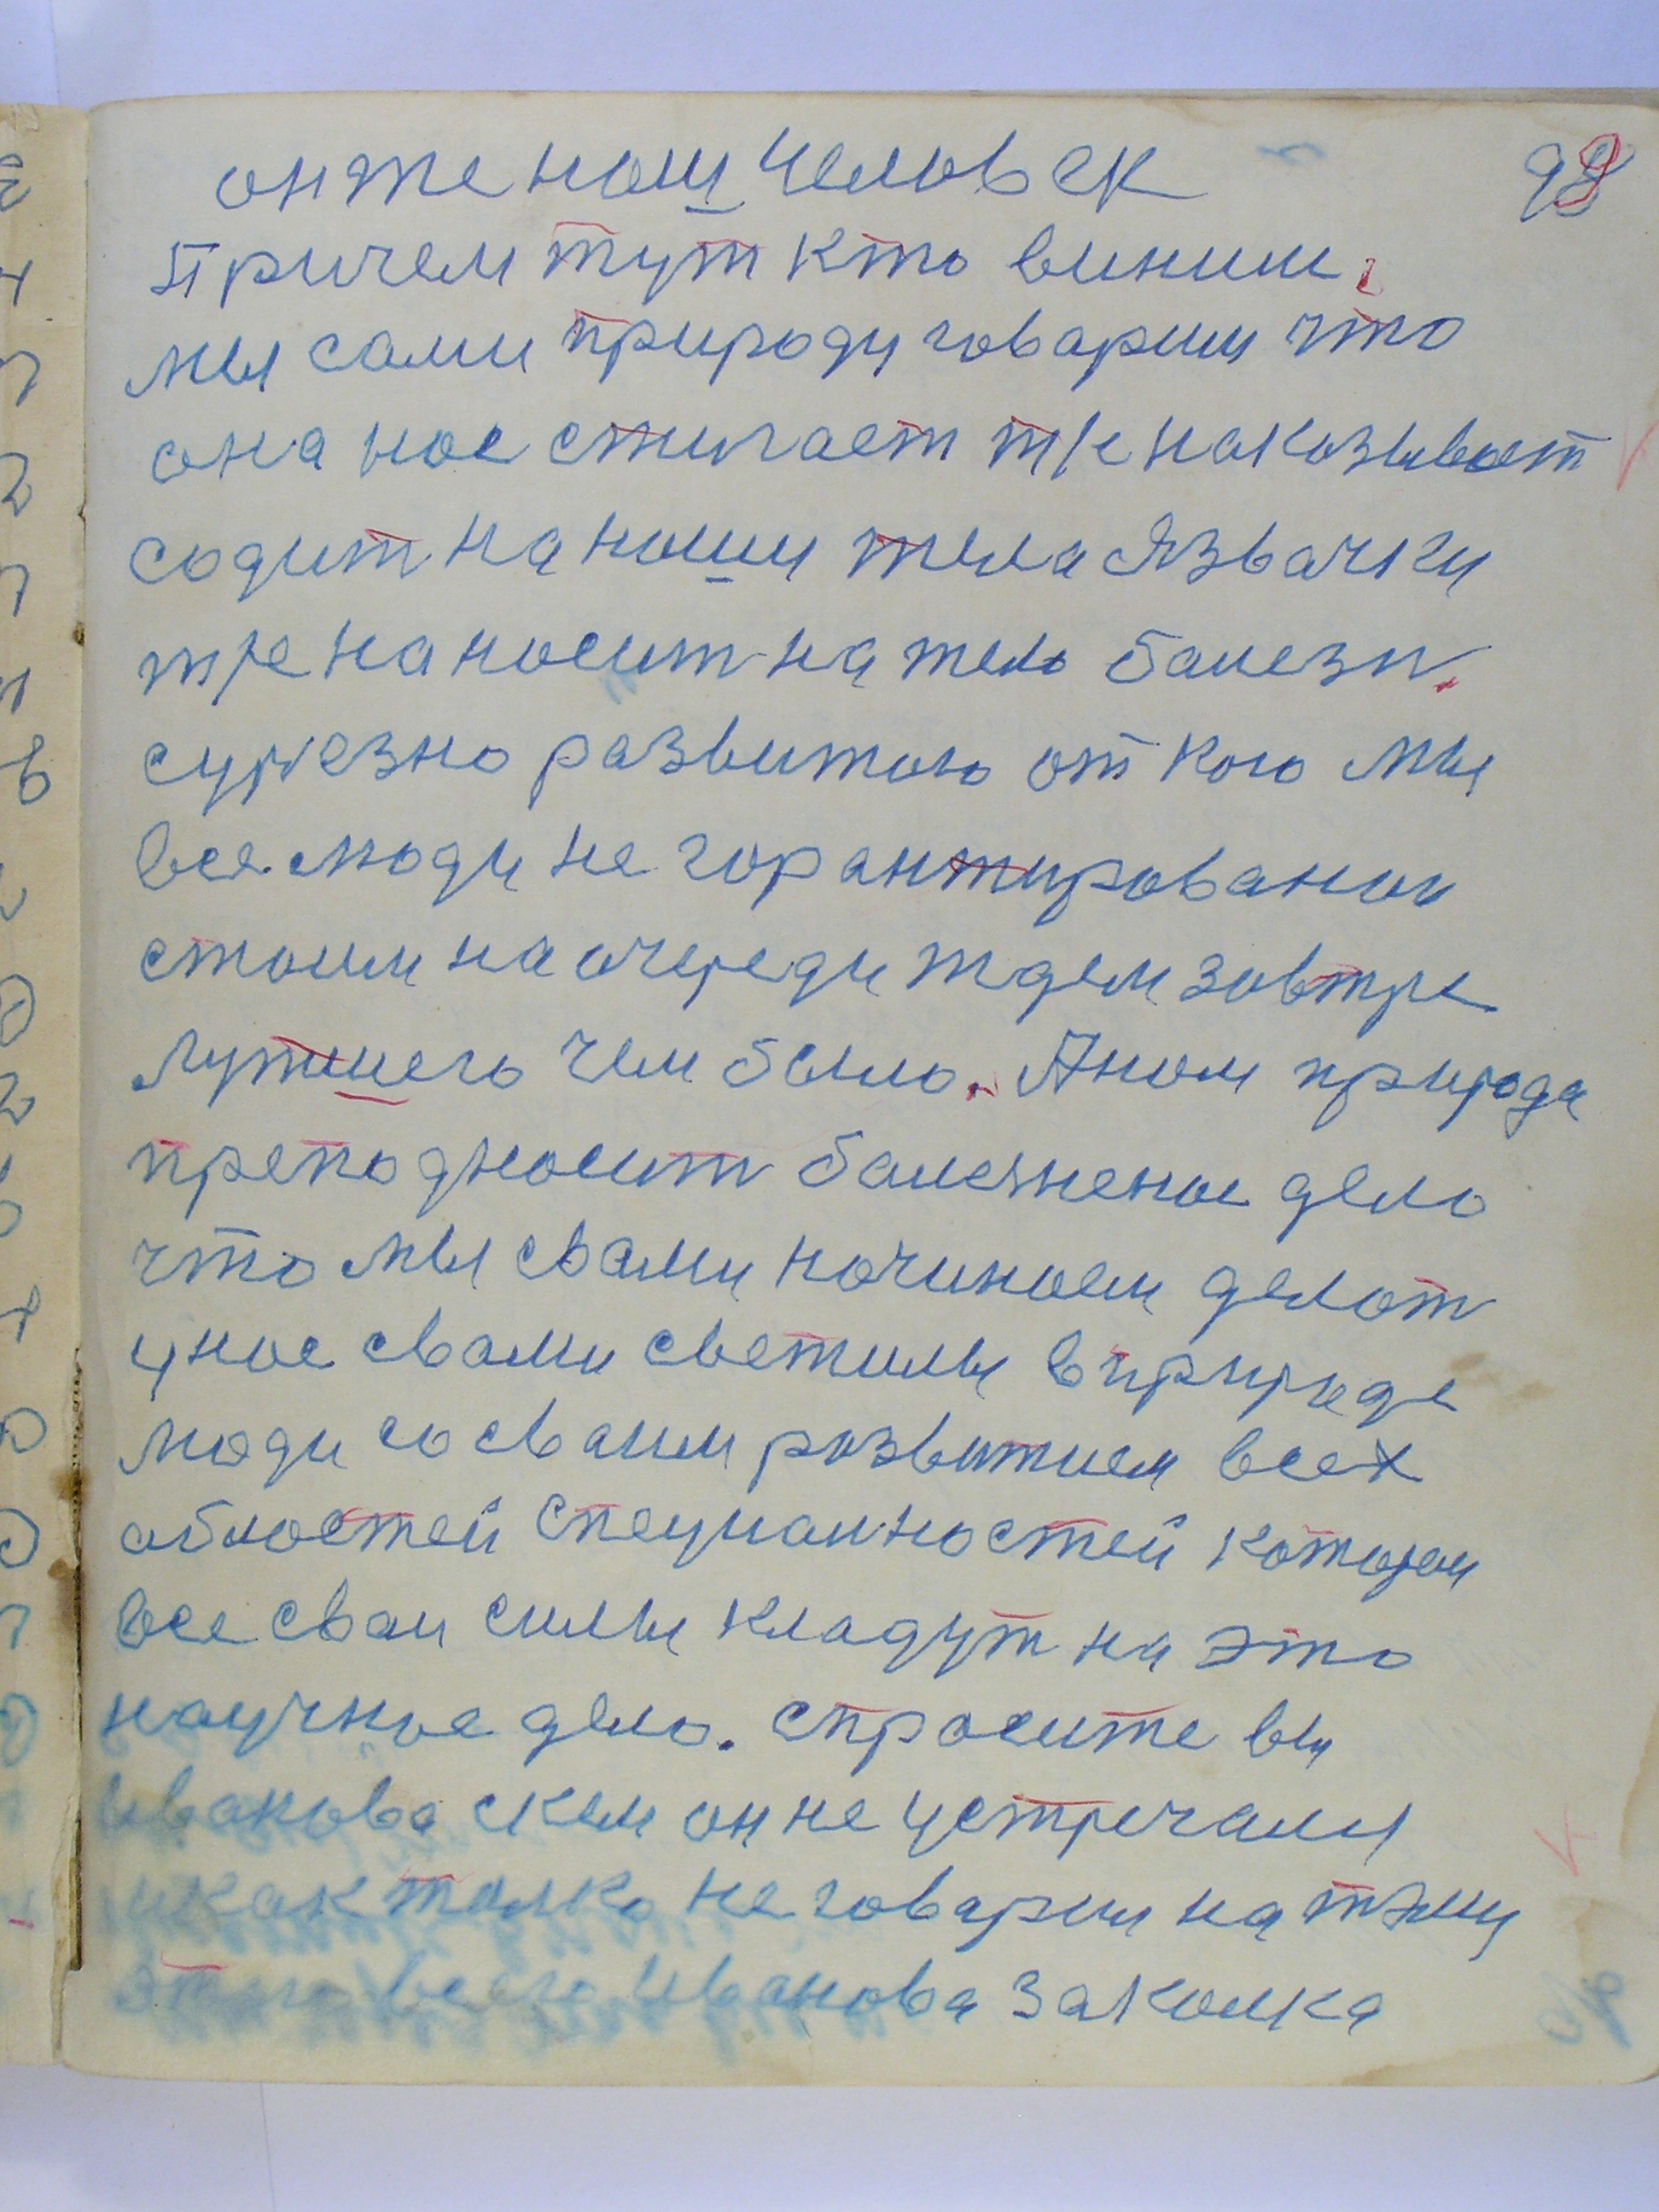 он же наш человек 99
Причем тут кто виним.
мы сами природу говарим что
она нас стигает т/е наказывает
содит на наши тела язвачки
т/е наносит на тело балезн.
сурезно развитою от кого мы
все люди не горантированы
стоим на очереди ждем завтре
лутшего чем было. А нам природа
преподносит балезненое дело
что мы свами начинаем делат
у нас свами светилы в природе
люди со сваим розвитием всех
областей специалностей которои
все сваи силы кладут на это
научное дело. спросите вы
Иванова скем он не устречался
и как толко не говарил на тэму
этого всего Иванова закалка